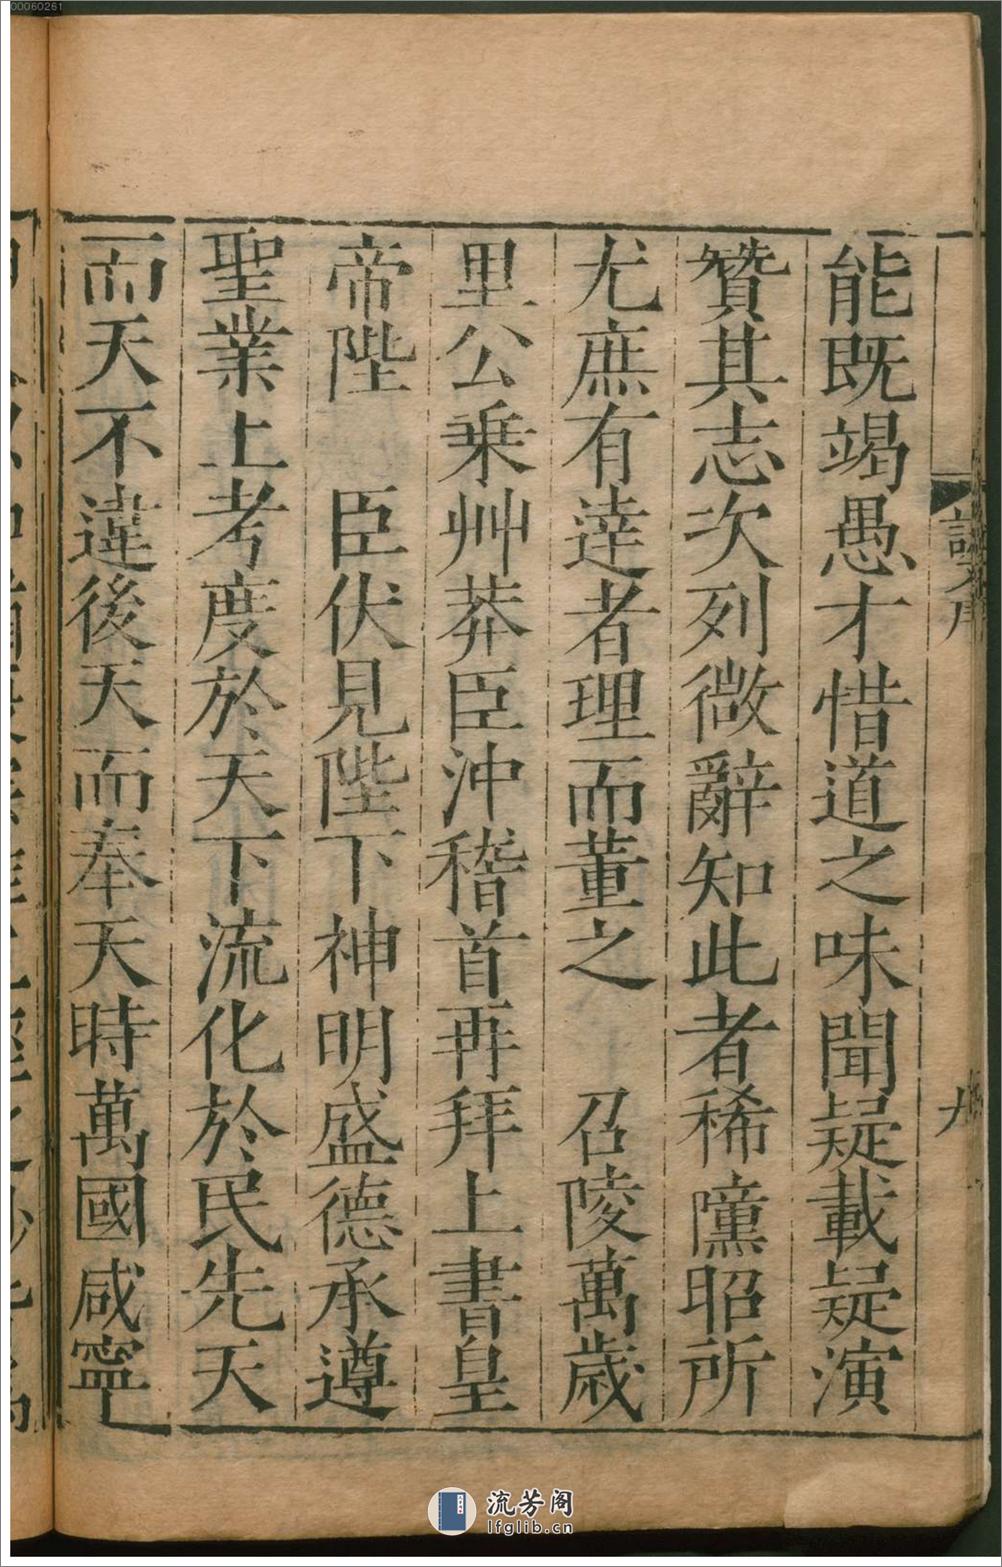 能既竭愚才惜道之味聞疑載疑演
贊其志次列微辭知此者稀儻昭所
尤庶有達者理而董之　召陵萬歲
里公乗艸莽臣沖稽首再拜上書皇
帝陛　臣伏見陛下神明盛德承遵
聖業上考度於天下流化於民先天
而天不違後天而奉天時萬國咸寧
說文序
九
00060261
流芳阁
lfglib.cn